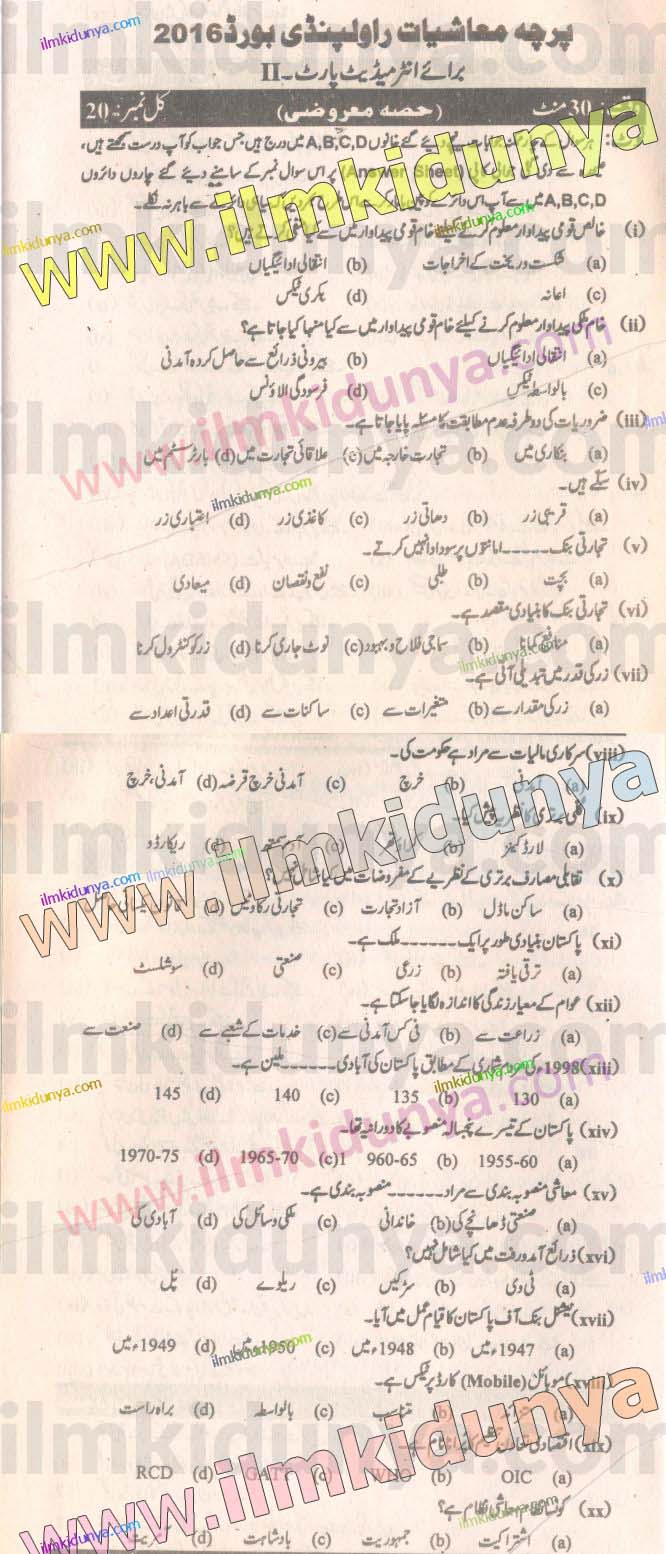 پرچہ معاشیات راولپنڈی بورڈ 2016
برائے انٹرمیڈیٹ پارٹ۔ II
وقت: 30 منٹ (حصہ معروضی) کل نمبر: 20
A,B,C,D میں درج ہیں، جس جواب کو آپ درست سمجھتے ہیں،
(Answer Sheet) پر اس سوال نمبر کے سامنے دیے گئے چاروں دائروں
A,B,C,D میں سے باہر نہ نکلے۔
(i) خالص قومی پیداوار معلوم کرنے کیلئے خام قومی پیداوار میں سے کیا
(a) شکست و ریخت کے اخراجات (b) انتقالی ادائیگیاں
(c) اعانہ (d) بکری ٹیکس
(ii) خام ملکی پیداوار معلوم کرنے کیلئے خام قومی پیداوار میں سے کیا منہا کیا جاتا ہے؟
(a) انتقالی ادائیگیاں (b) بیرونی ذرائع سے حاصل کردہ آمدنی
(c) بالواسطہ ٹیکس (d) فرسودگی الاؤنس
(iii) ضروریات کی دو طرفہ عدم مطابقت کا مسئلہ پایا جاتا ہے۔
(a) بنکاری میں (b) تجارت خارجہ میں (c) علاقائی تجارت میں (d) بارٹر سسٹم میں
(iv) سکے ہیں۔
(a) قریبی زر (b) دھاتی زر (c) کاغذی زر (d) اعتباری زر
(v) تجارتی بنک ۔۔۔۔۔ امانتوں پر سود ادا نہیں کرتے۔
(a) بچت (b) طلبی (c) نفع و نقصان (d) میعادی
(vi) تجارتی بنک کا بنیادی مقصد ہے۔
(a) منافع کمانا (b) سماجی فلاح و بہبود (c) نوٹ جاری کرنا (d) زر کو کنٹرول کرنا
(vii) زر کی قدر میں تبدیلی آتی ہے۔
(a) زر کی مقدار سے (b) متغیرات سے (c) ساکنات سے (d) قدرتی اعداد سے
(viii) سرکاری مالیات سے مراد ہے حکومت کی۔
(a) آمدنی (b) خرچ (c) آمدنی خرچ قرضہ (d) آمدنی، خرچ
(ix) کلی برتری کا نظریہ پیش کیا۔
(a) لارڈ کینز (b) (c) آدم سمتھ (d) ریکارڈو
(x) تقابلی مصارف برتری کے نظریے کے مفروضات میں کیا شامل نہیں؟
(a) ساکن ماڈل (b) آزاد تجارت (c) تجارتی رکاوٹیں (d)
(xi) پاکستان بنیادی طور پر ایک ۔۔۔۔۔ ملک ہے۔
(a) ترقی یافتہ (b) زرعی (c) صنعتی (d) سوشلسٹ
(xii) عوام کے معیار زندگی کا اندازہ لگایا جا سکتا ہے۔
(a) زراعت سے (b) فی کس آمدنی سے (c) خدمات کے شعبے سے (d) صنعت سے
(xiii) 1998ء کی مردم شماری کے مطابق پاکستان کی آبادی ۔۔۔۔۔ ملین ہے۔
(a) 130 (b) 135 (c) 140 (d) 145
(xiv) پاکستان کے تیسرے پنجسالہ منصوبے کا دورانیہ تھا۔
(a) 1955-60 (b) 1960-65 (c) 1965-70 (d) 1970-75
(xv) معاشی منصوبہ بندی سے مراد ۔۔۔۔۔ منصوبہ بندی ہے۔
(a) صنعتی ڈھانچے کی (b) خاندانی (c) ملکی وسائل کی (d) آبادی کی
(xvi) ذرائع آمد و رفت میں کیا شامل نہیں؟
(a) ٹی وی (b) سڑکیں (c) ریلوے (d) پل
(xvii) نیشنل بنک آف پاکستان کا قیام عمل میں آیا۔
(a) 1947ء میں (b) 1948ء میں (c) 1950ء میں (d) 1949ء میں
(xviii) موبائل (Mobile) کارڈ پر ٹیکس ہے۔
(a) متزائد (b) متناسب (c) بالواسطہ (d) براہ راست
(xix) اقتصادی تعاون تنظیم کا پرانا نام ہے۔
(a) OIC (b) WHO (c) GATT (d) RCD
(xx) کونسا نظام معاشی نظام ہے؟
(a) اشتراکیت (b) جمہوریت (c) بادشاہت (d) آمریت
www.ilmkidunya.com
ilmkidunya.com